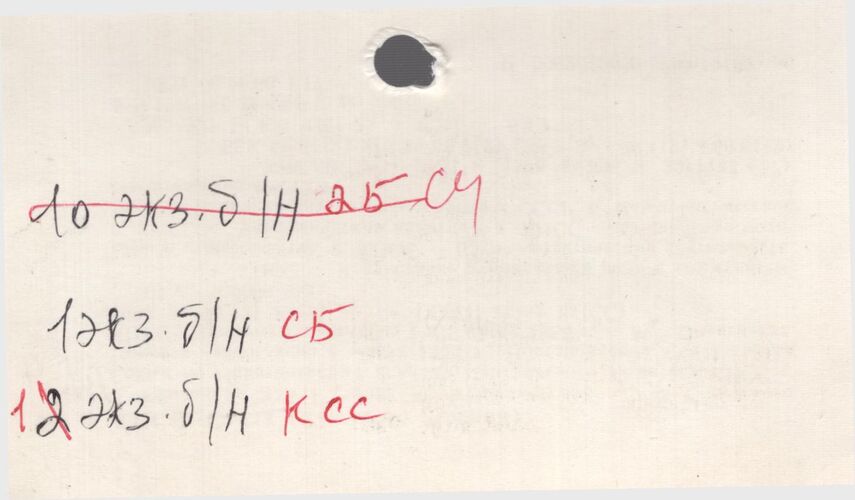 10 экз. б/н 2Б СЧ
1 экз. б/н СБ
1 2 экз. б/н КСС